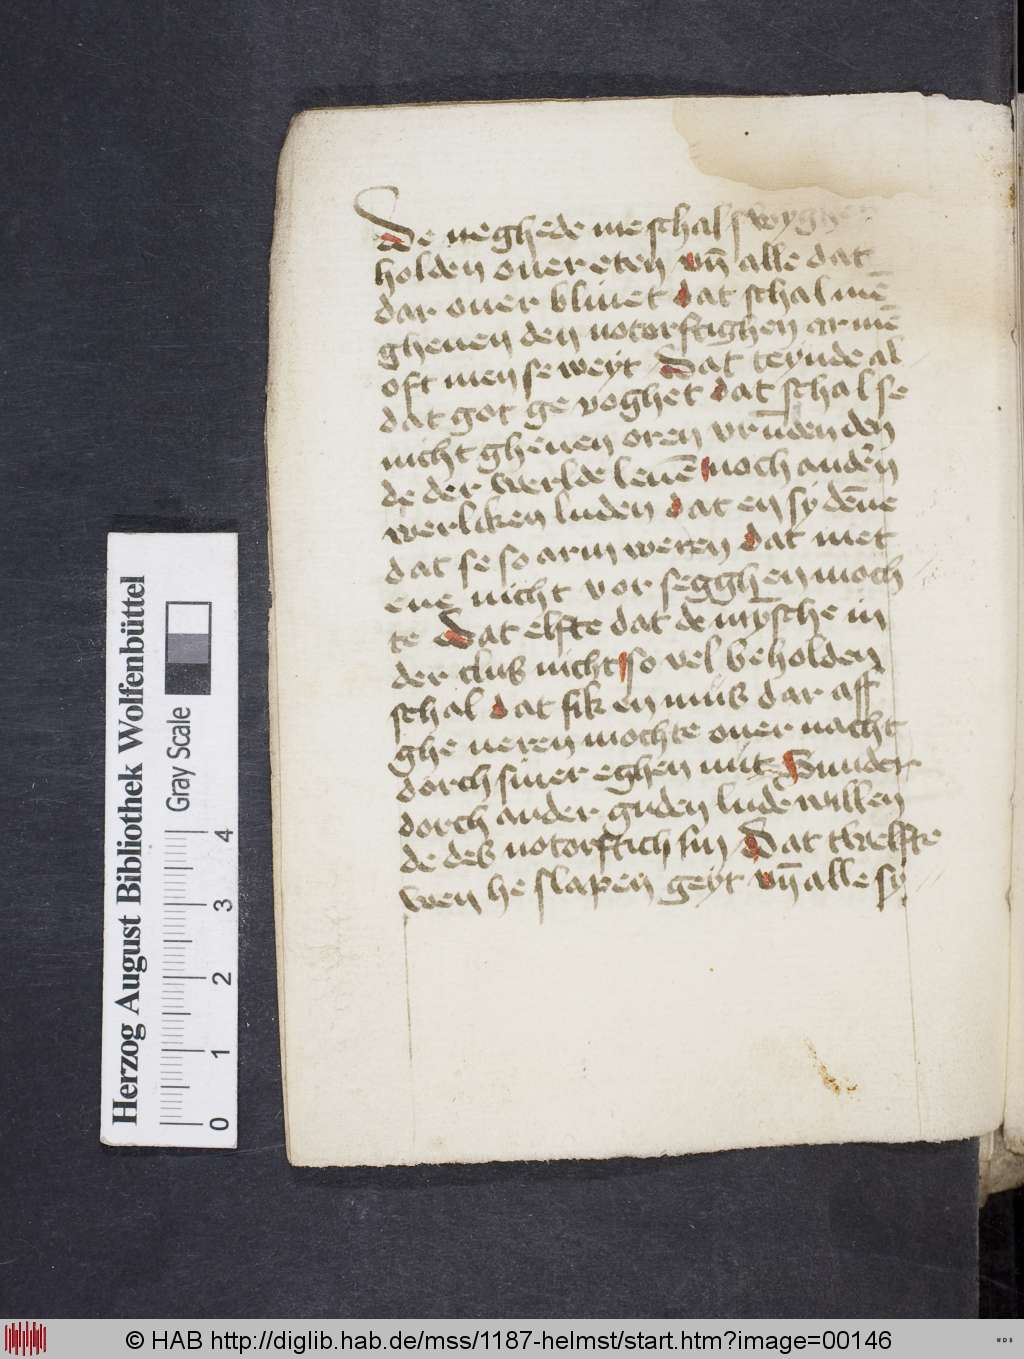 De neghede me schal swyghen
holden ouer eten vn̄ alle dat
dar ouer bliuet dat schal mē
gheuen den notorftighen armē
oft men se weyt Dat teynde al
dat got ge voghet dat schal se
nicht gheuen oren vrūden den
de der werlde leuē noch andēn
werliken luden dat en sy dēne
dat se so arm weren dat met
ene nicht vor segghen moch
te Dat elfte dat de mysche in
der clus nicht so vel beholden
schal dat sik en mus dar aff
ghe neren mochte ouer nacht
dorch siner eghen nut Sunder
dorch ander guden lude willen
de des notorftich sin Dat twelfte
wen he slapen geyt vn̄ alle sy
Herzog August Bibliothek Wolfenbüttel
Gray Scale
0 1 2 3 4
© HAB http://diglib.hab.de/mss/1187-helmst/start.htm?image=00146
WDB